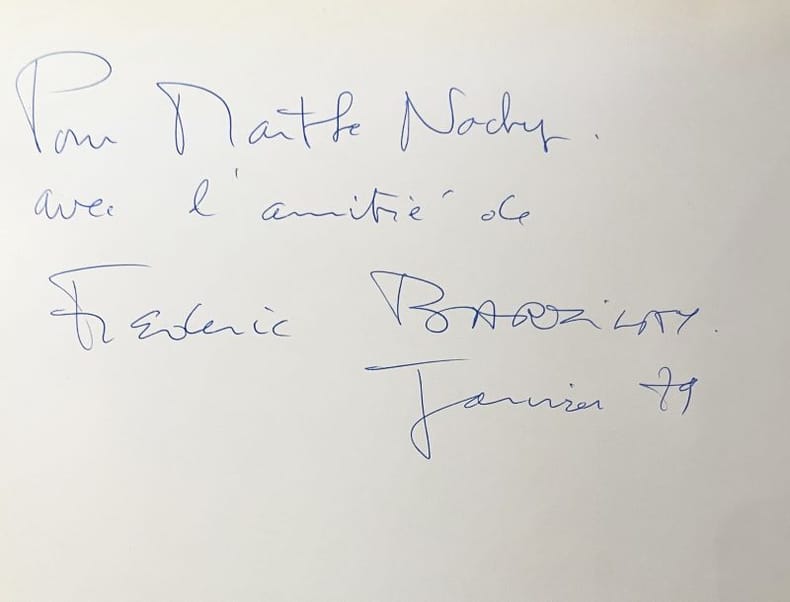 Pour Marthe Nochy.
avec l'amitié de
Frederic BARZILAY.
Janvier 79